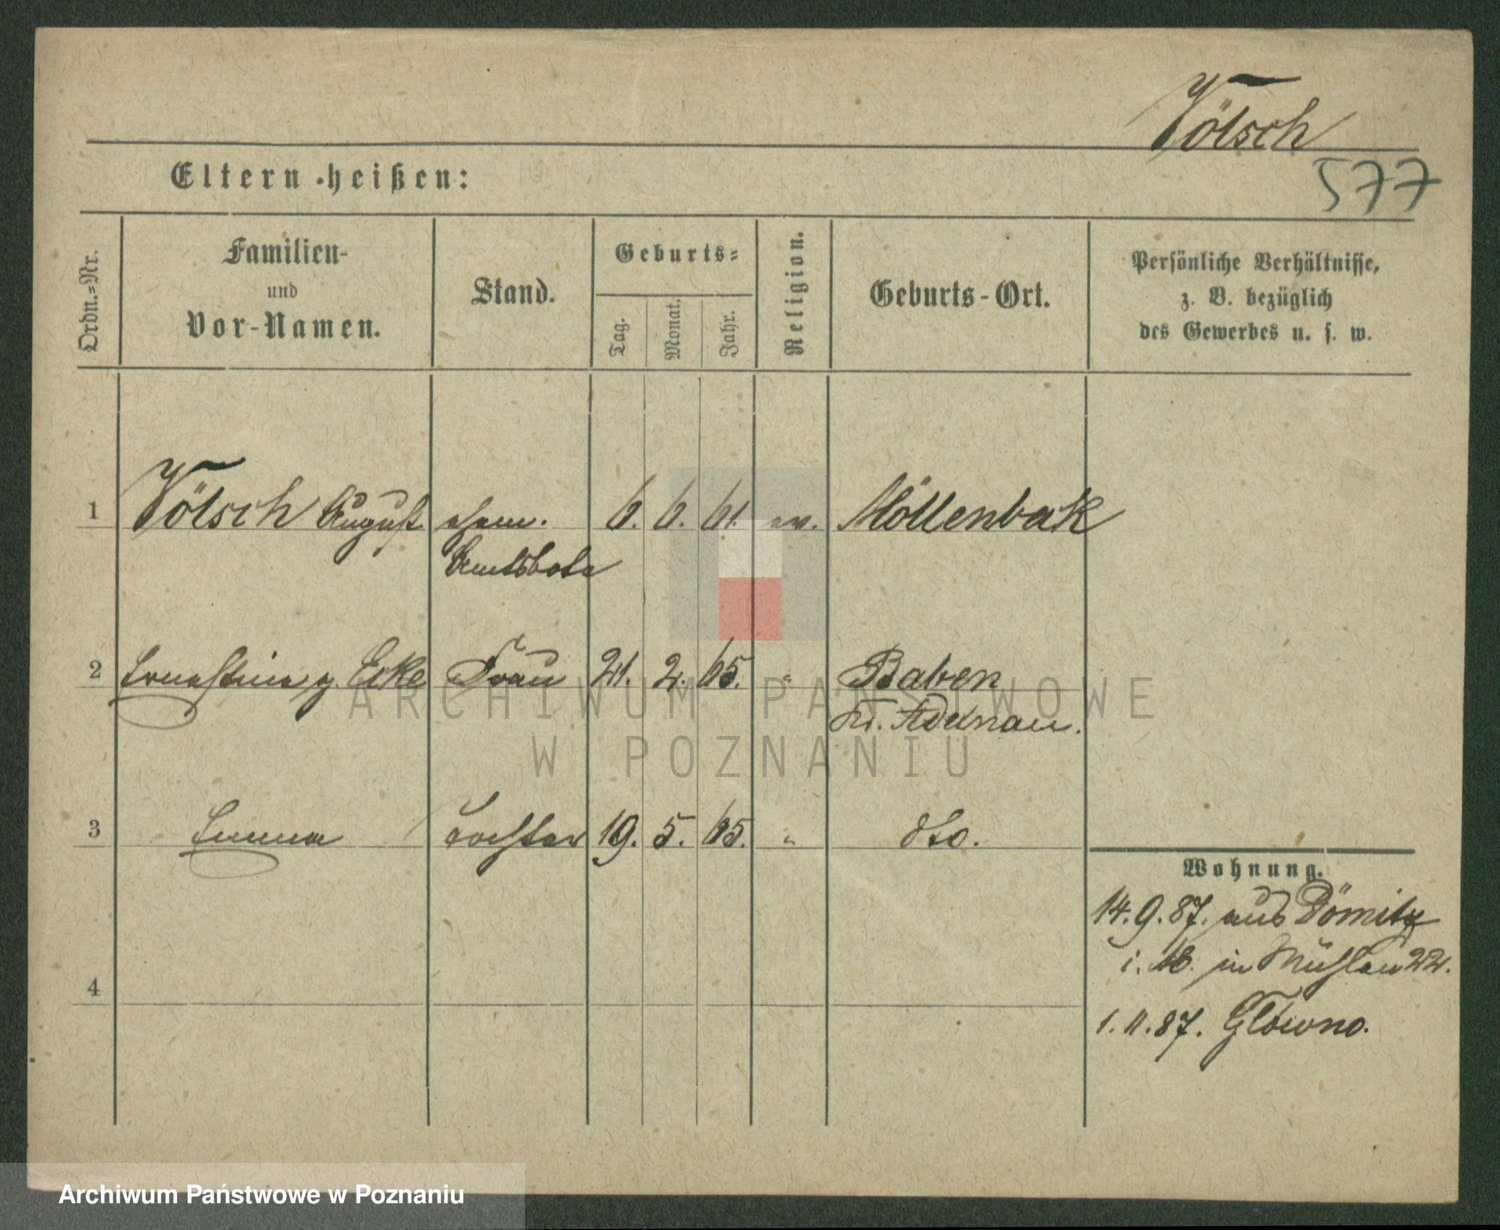 Völsch
577
Eltern heißen:
Ordn.-Nr.
Familien-
und
Vor-Namen.
Stand.
Geburts-
Tag.
Monat.
Jahr.
Religion.
Geburts-Ort.
Persönliche Verhältnisse,
z. B. bezüglich
des Gewerbes u. s. w.
1 Völsch August ehem. 6. 6. 61. ev. Möllenbek
Amtsbote
2 Ernestine g. Eke Frau 21. 2. 65. " Baben
Kr. Adelnau.
3 Emma Tochter 19. 5. 65. " dto.
4
Wohnung.
14.9.87. aus Dömitz
i. M. in Mühlen 22.
1.11.87. Glowno.
ARCHIWUM PAŃSTWOWE
W POZNANIU
Archiwum Państwowe w Poznaniu